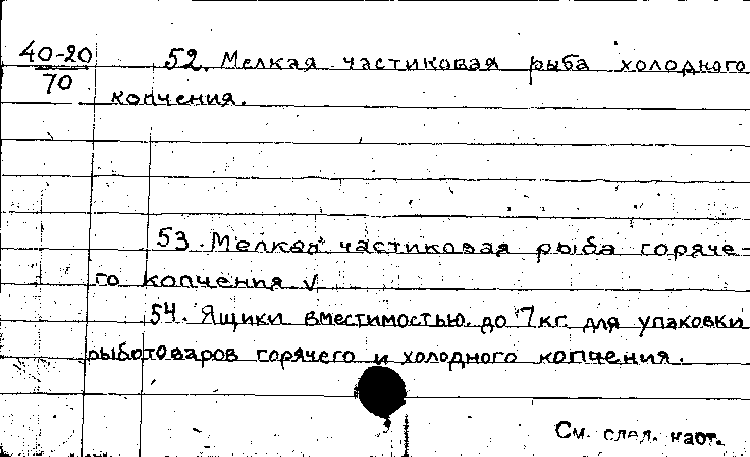 40-20
70
52. Мелкая частиковая рыба холодного
копчения.
53. Мелкая частиковая рыба горяче-
го копчения v
54. Ящики вместимостью до 7 кг. для упаковки
рыботоваров горячего и холодного копчения.
См. след. карт.